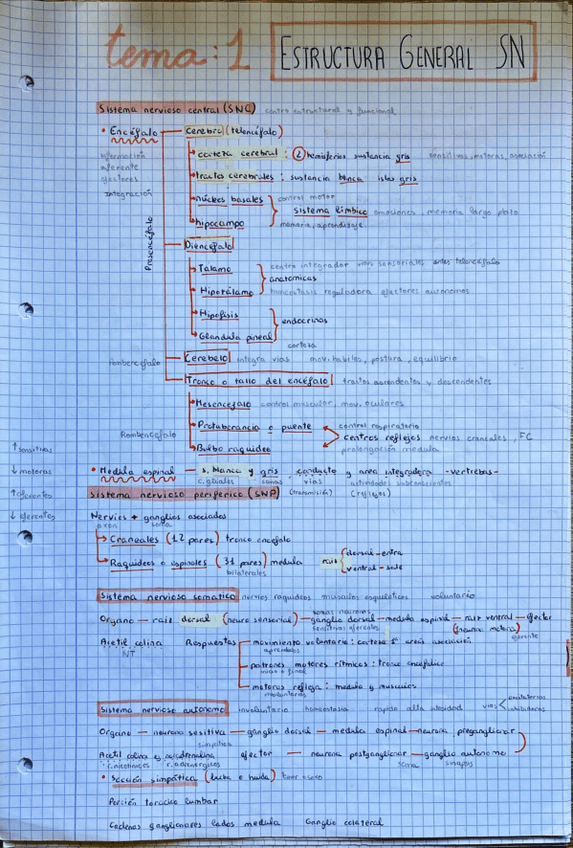 tema: 1 ESTRUCTURA GENERAL SN
Sistema nervioso central (SNC) centro estructural y funcional
• Encéfalo — cerebro (telencéfalo)
información aferente efectores integración
corteza cerebral: (2) hemisferios sustancia gris sensitivas, motoras, asociación
tractos cerebrales: sustancia blanca islas gris
núcleos basales control motor
sistema límbico emociones, memoria largo plazo
hipocampo memoria, aprendizaje
Prosencéfalo
Diencéfalo
Tálamo centro integrador vías sensoriales antes telencéfalo
anatómicas
Hipotálamo homeostasis reguladora efectores autónomos
Hipófisis
endocrinas
Glándula pineal
corteza
Rombencéfalo Cerebelo integra vías mov. hábiles, postura, equilibrio
Tronco o tallo del encéfalo tractos ascendentes y descendentes
Mesencéfalo control muscular, mov. oculares
Protuberancia o puente control respiratorio
Rombencéfalo centros reflejos nervios craneales, FC
Bulbo raquídeo prolongación médula
↑ sensitivas
↓ motoras
• Médula espinal — s. blanca y gris, conducto y área integradora -vertebras-
c. gliales somas vías actividades subconscientes
↑ aferentes
Sistema nervioso periférico (SNP) (transmisión) (reflejos)
↓ eferentes
Nervios + ganglios asociados
axon soma
Craneales (12 pares) tronco encéfalo
Raquídeos o espinales (31 pares) médula raíz dorsal-entra
bilaterales ventral-sale
Sistema nervioso somático nervios raquídeos músculos esqueléticos voluntario
somas neuronas
Organo — raíz dorsal (neuro sensorial) — ganglio dorsal — medula espinal — raíz ventral — efector
sensitivas aferentes (neurona motora) eferente
Acetil colina Respuestas movimiento voluntario: corteza 1ª áreas asociación
NT aprendidos
patrones motores rítmicos: tronco encefálico
inicio y final
motoras refleja: médula y músculos
involuntarios
Sistema nervioso autónomo involuntario homeostasis rapido alta intensidad vías excitatorias
inhibidoras
Organo — neurona sensitiva — ganglio dorsal — medula espinal — neurona preganglionar
simpática
Acetil colina y noradrenalina efector — neurona postganglionar — ganglio autonomo
r. nicotínicos r. adrenérgicos soma sinapsis
• Sección simpática (lucha o huida)
Porción toracico lumbar
Cadenas ganglionares lados medula Ganglio colateral